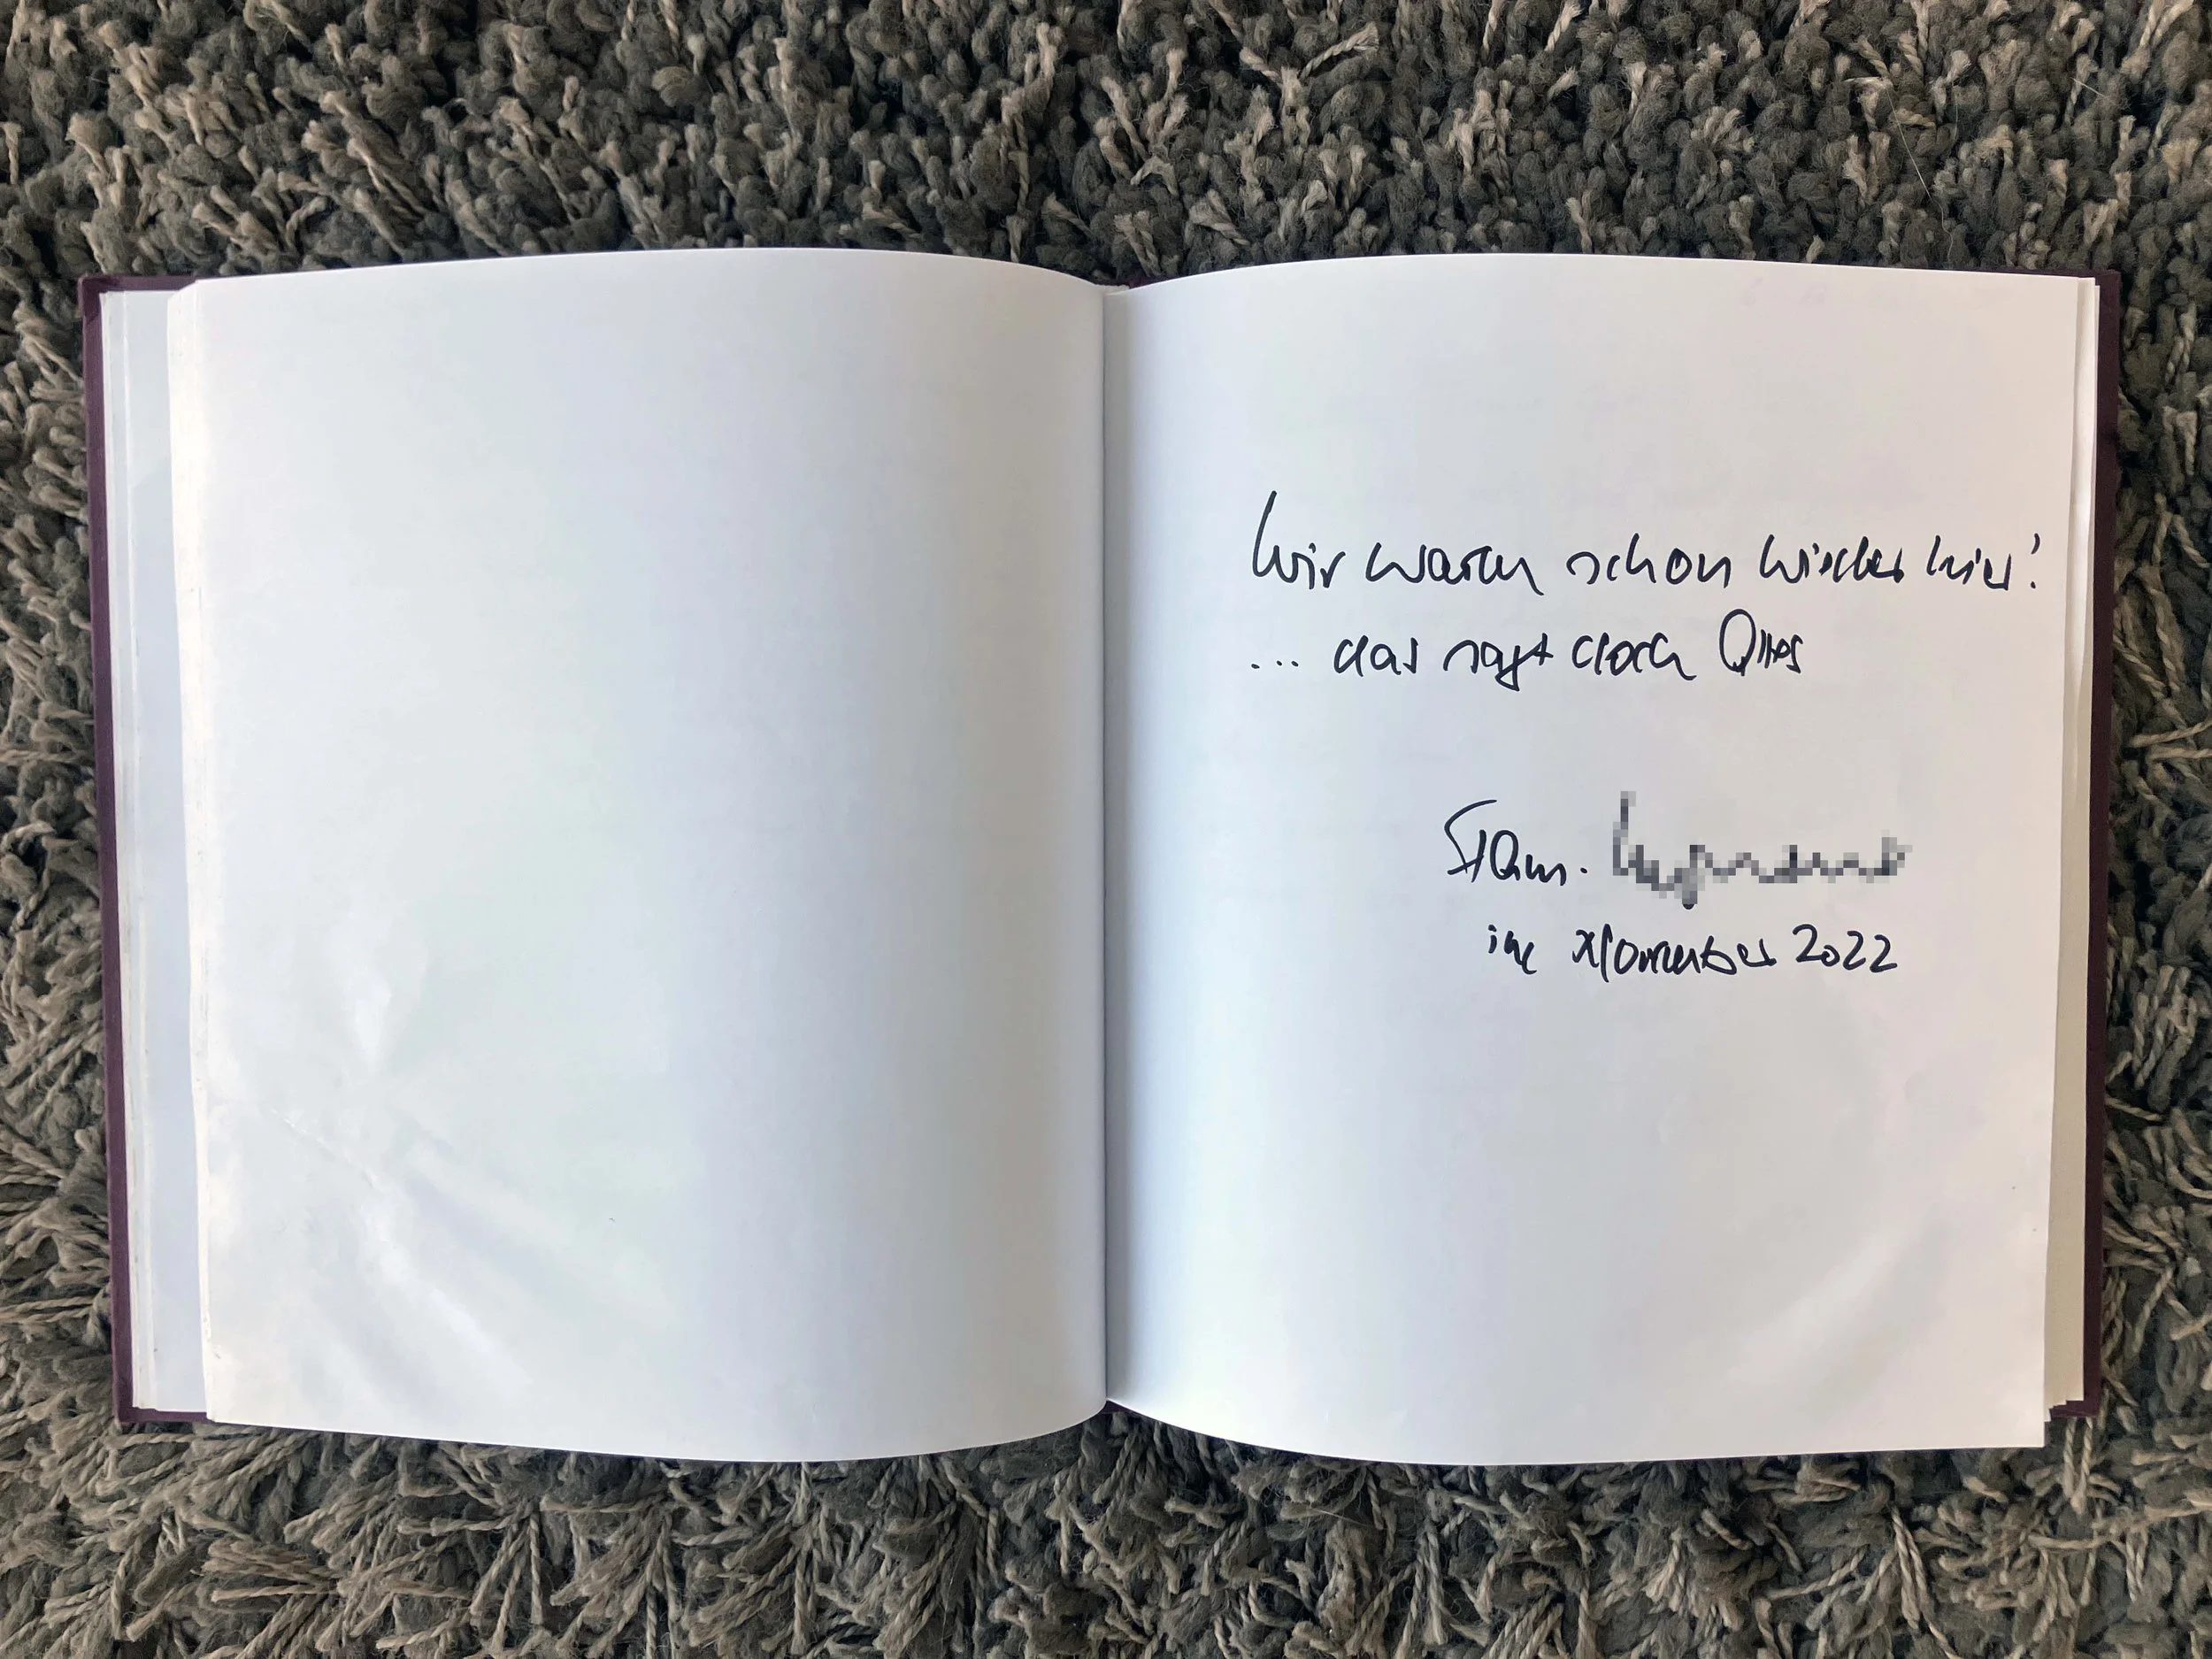 Wir waren schon wieder hier!
... das sagt doch Alles
Fam.
im November 2022